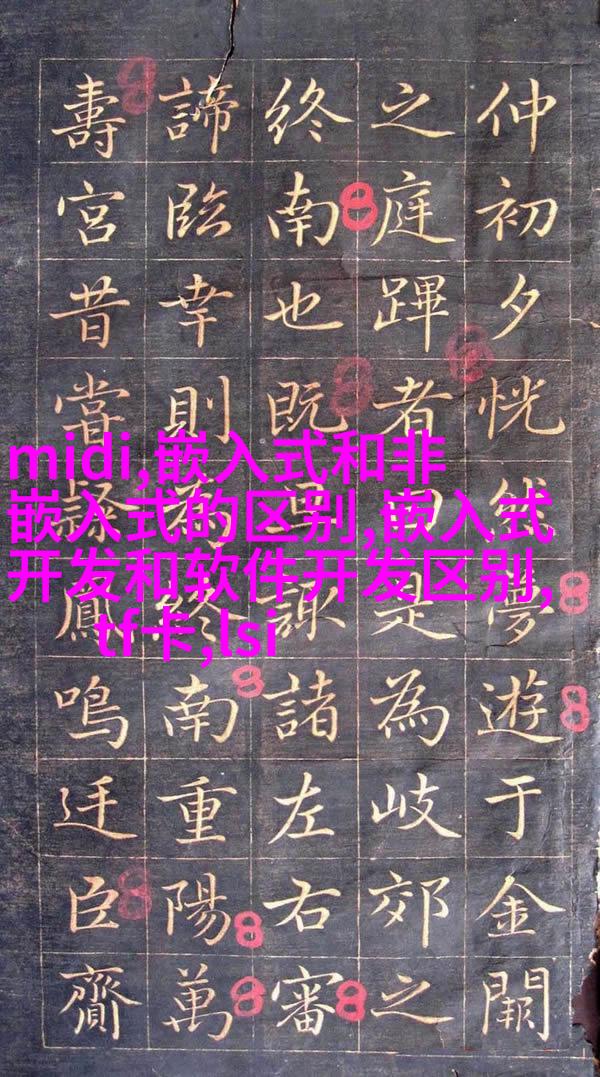 仲初夕恍然夢遊于金闕
之庭蹕者曰是為岐郊之
終南也既諏諸左右審
諦臨幸則為終南重陽萬
壽宮昔嘗隸鳳鳴迋臣齎
midi,嵌入式和非
嵌入式的区别,嵌入式
开发和软件开发区别,
tf卡,lsi